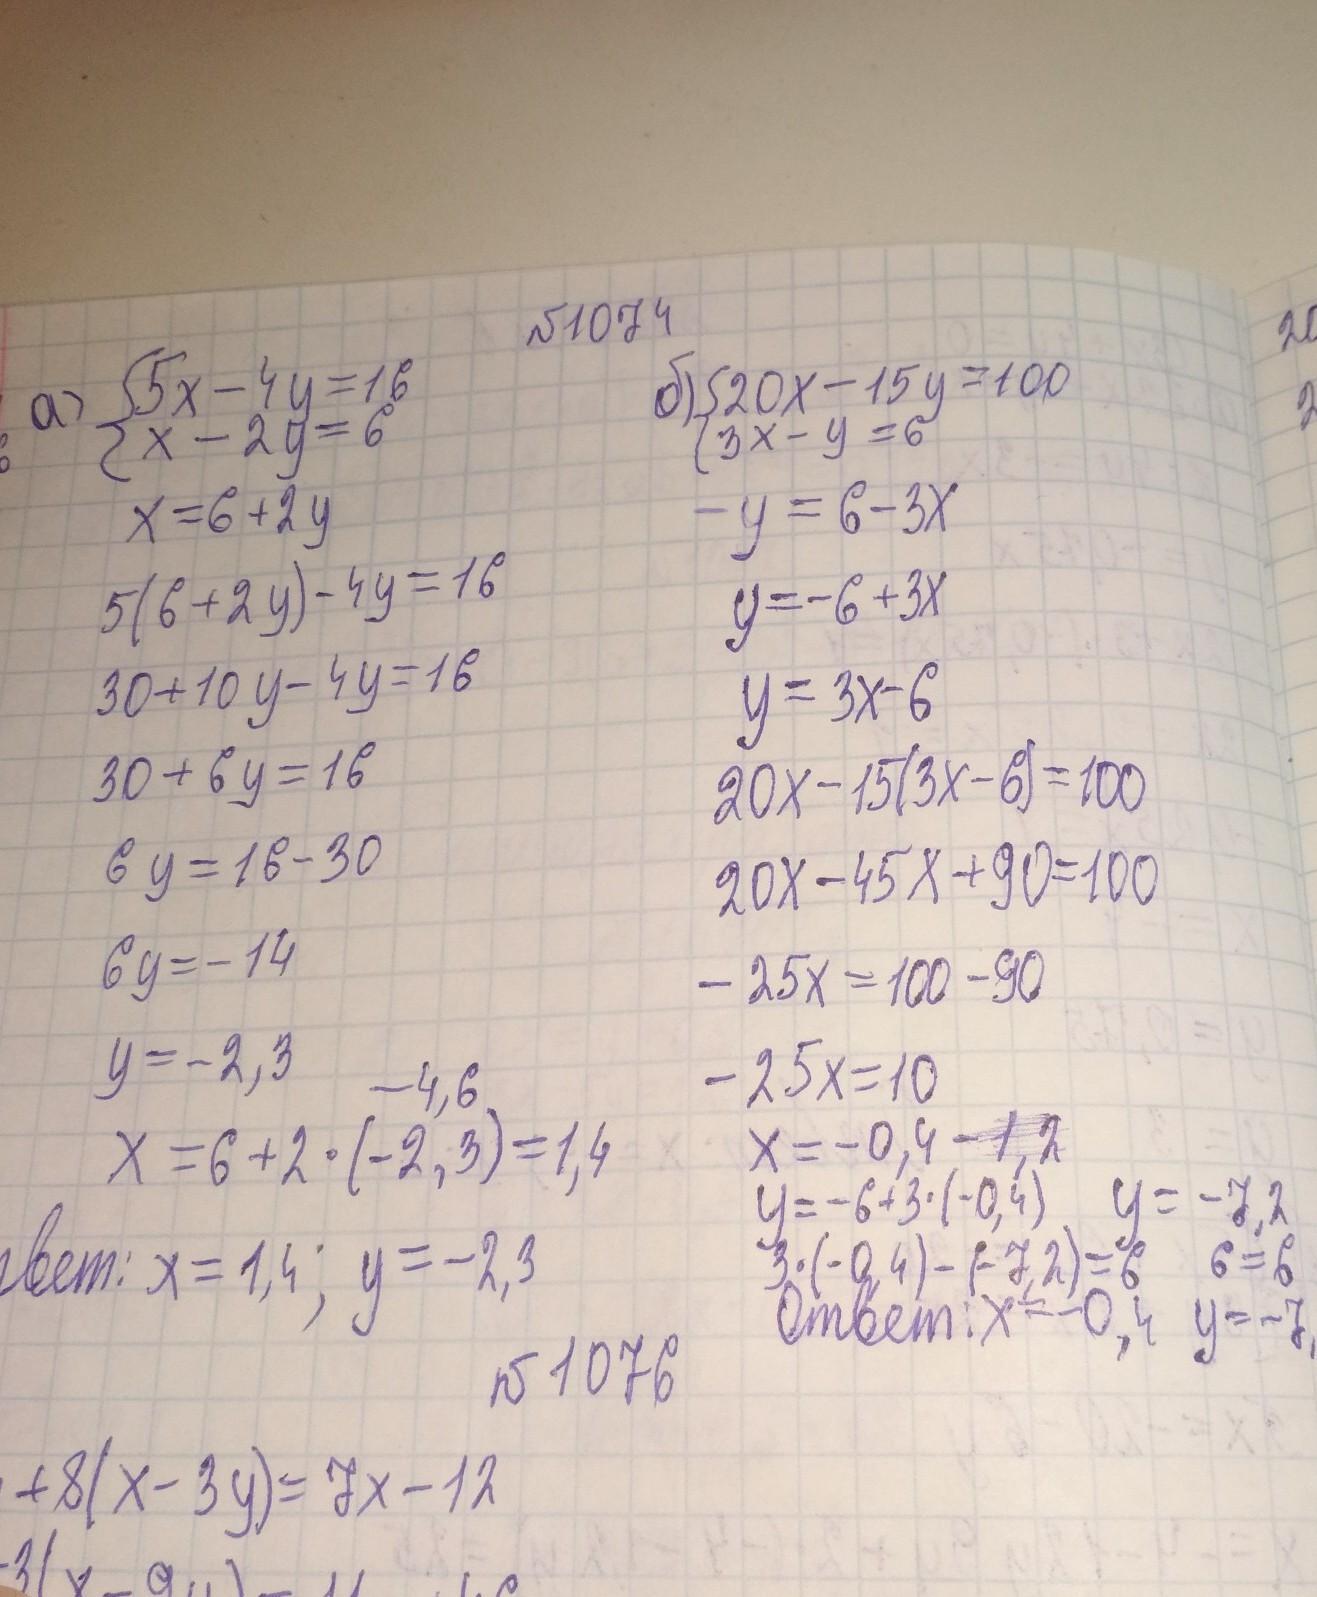 №1074
а) {5x-4y=16
{x-2y=6
x=6+2y
5(6+2y)-4y=16
30+10y-4y=16
30+6y=16
6y=16-30
6y=-14
y=-2,3
-4,6
x=6+2·(-2,3)=1,4
твет: x=1,4; y=-2,3
б) {20x-15y=100
{3x-y=6
-y=6-3x
y=-6+3x
y=3x-6
20x-15(3x-6)=100
20x-45x+90=100
-25x=100-90
-25x=10
x=-0,4 -1,2
y=-6+3·(-0,4) y=-7,2
3·(-0,4)-(-7,2)=6 6=6
Ответ: x=-0,4 y=-7,
№1076
+8(x-3y)=7x-12
-3(x-9y)=11
20
2